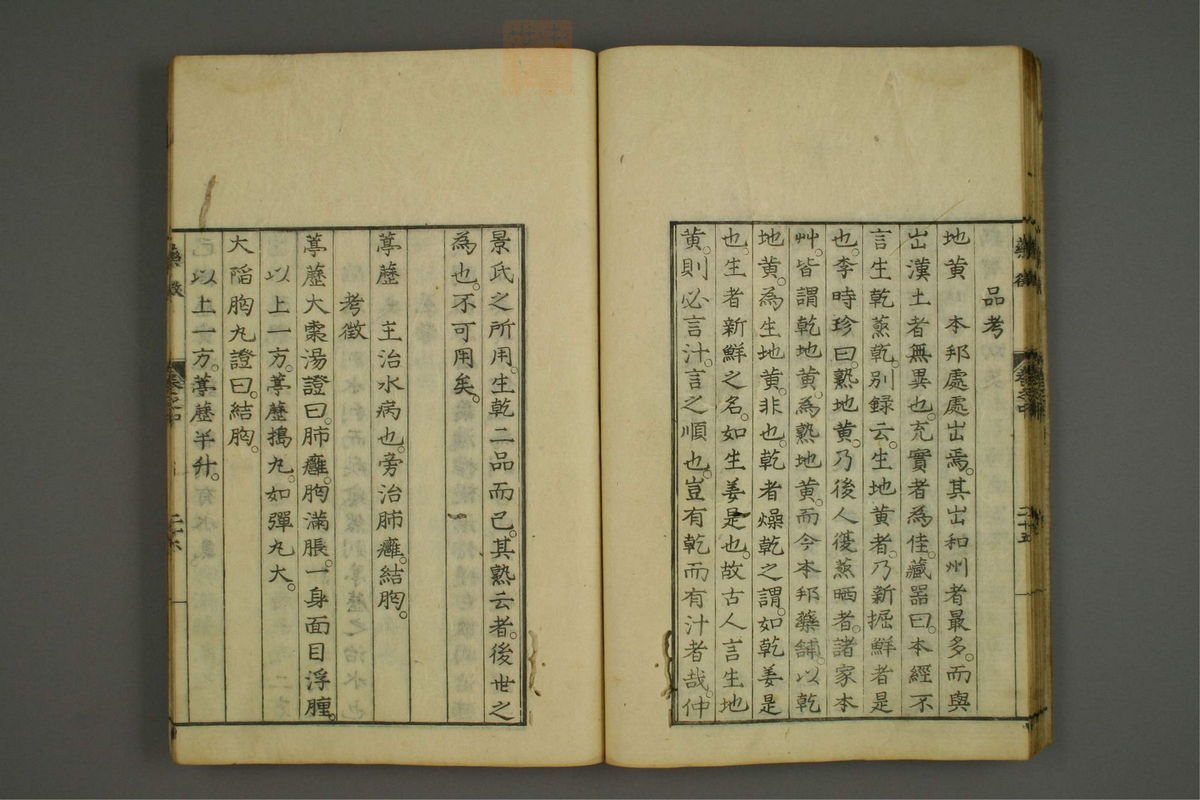 品考
地黄 本邦處處出焉。其出和州者最多。而與
出漢土者無異也。充實者為佳。藏器曰。本經不
言生乾蒸乾。別録云。生地黄者。乃新掘鮮者是
也。李時珍曰。熟地黄。乃後人復蒸晒者。諸家本
艸。皆謂乾地黄。為熟地黄。而今本邦藥舗。以乾
地黄。為生地黄。非也。乾者燥乾之謂。如乾姜是
也。生者新鮮之名。如生姜是也。故古人言生地
黄。則必言汁。言之順也。豈有乾而有汁者哉。仲
藥徴 卷之中 二十五
景氏之所用。生乾二品而已。其熟云者。後世之
為也。不可用矣。
葶藶 主治水病也。旁治肺癰。結胸。
考徴
葶藶大棗湯證曰。肺癰。胸滿脹。一身面目浮腫。
以上一方。葶藶搗丸。如彈丸大。
大陷胸丸證曰。結胸。
以上一方。葶藶半升。
藥徴 卷之中 二十六